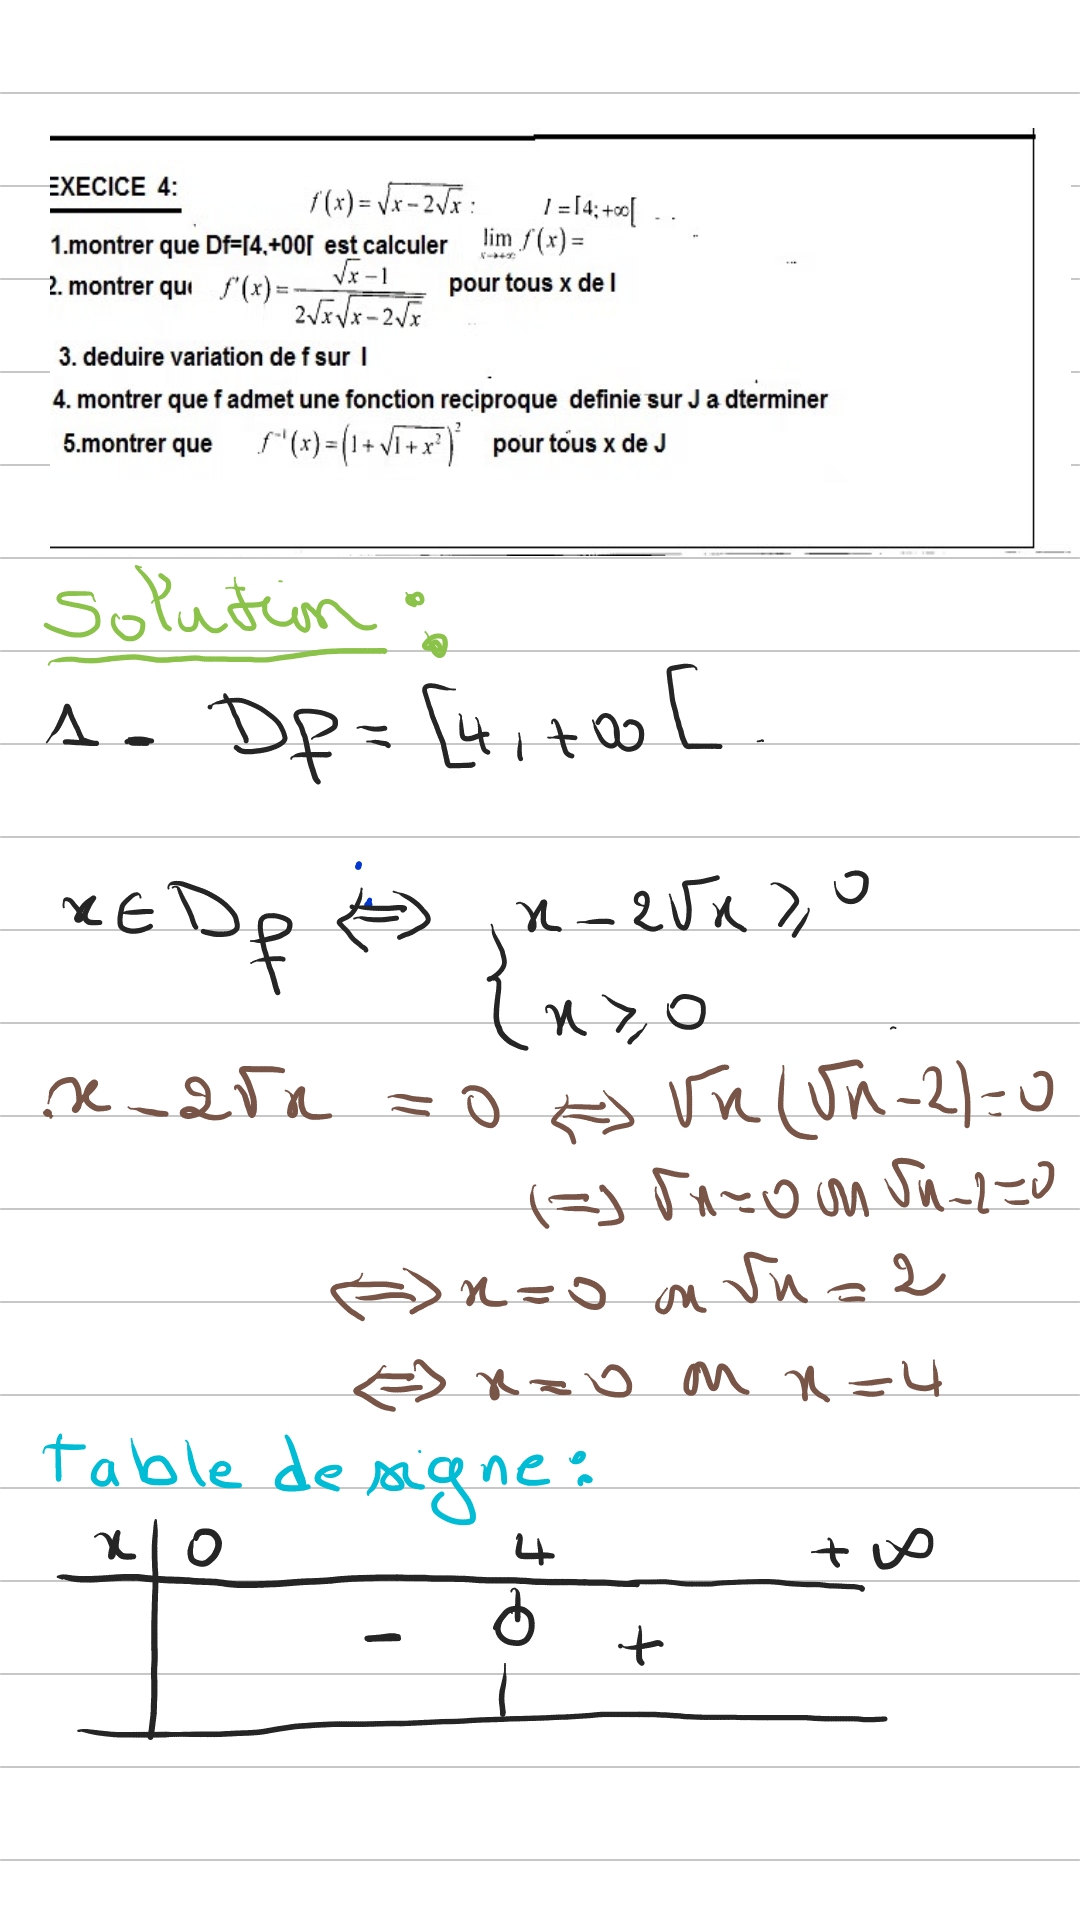 EXECICE 4:
f(x) = √(x − 2√x) : I = [4; +∞[
1.montrer que Df=[4,+00[ est calculer lim f(x) =
x→+∞
2. montrer que f'(x) = (√x − 1)/(2√x√(x − 2√x)) pour tous x de I
3. deduire variation de f sur I
4. montrer que f admet une fonction reciproque definie sur J a dterminer
5.montrer que f⁻¹(x) = (1 + √(1 + x²))² pour tous x de J
Solution :
1 - Df = [4, +∞[.
x ∈ Df ⟺ { x − 2√x ⩾ 0
x ⩾ 0
x − 2√x = 0 ⟺ √x(√x − 2) = 0
⟺ √x = 0 ou √x − 2 = 0
⟺ x = 0 ou √x = 2
⟺ x = 0 ou x = 4
Table de signe :
x 0 4 + ∞
− 0 +